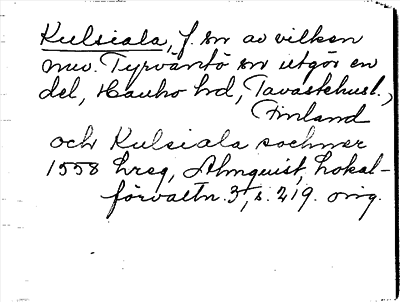 Kulsiala, f. sn av vilken
nuv. Tyrväntö sn utgör en
del, Hauho hd, Tavastehusl.,
Finland
och Kulsiala sochner
1558 hreg, Almquist, Lokal-
förvaltn. 3, s. 219. orig.